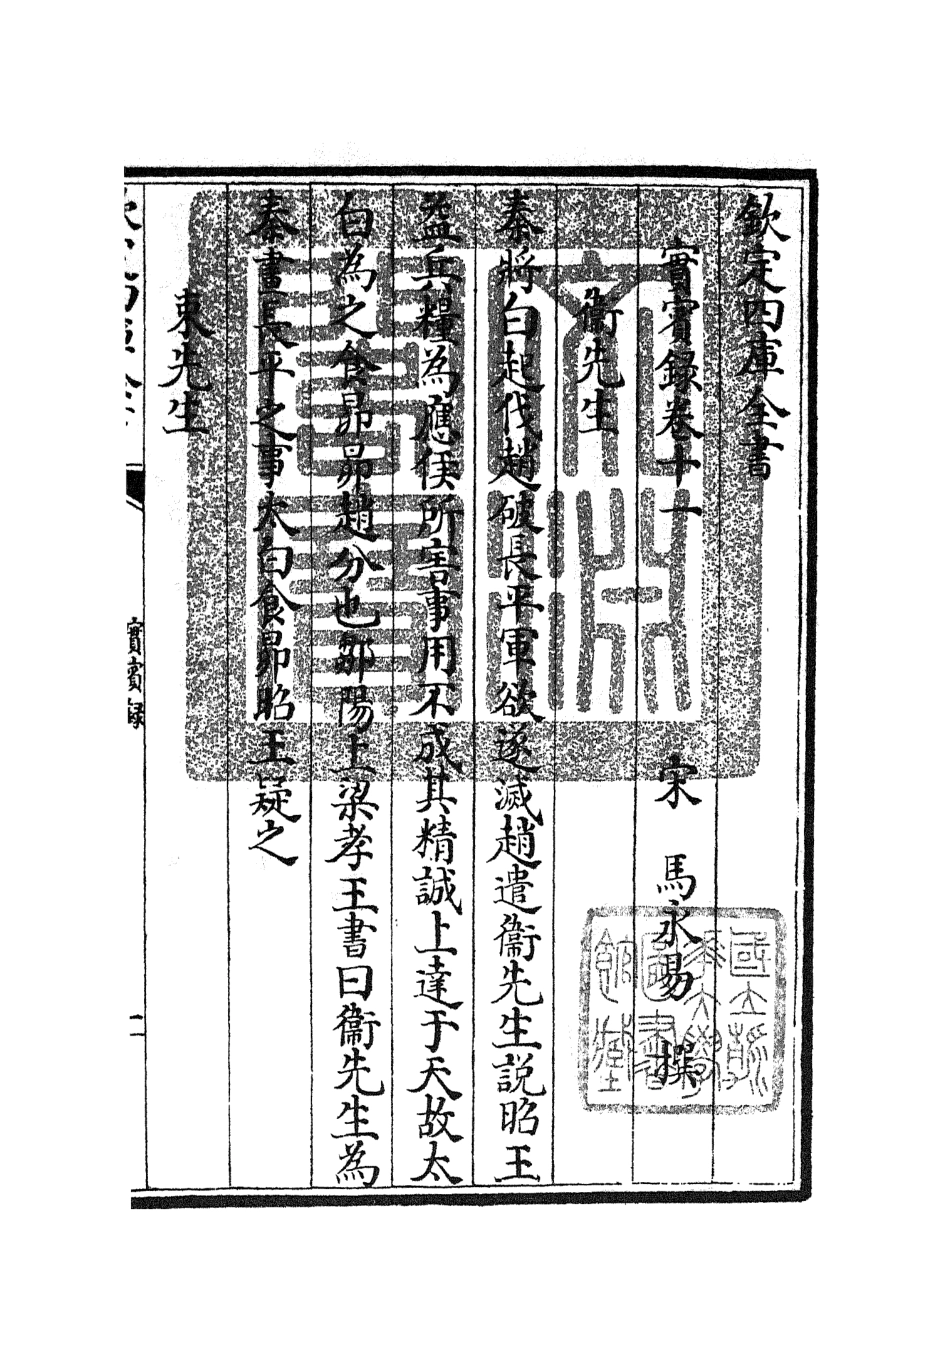 欽定四庫全書
實賓録卷十一
宋 馬永易 撰
衞先生
秦將白起伐趙破長平軍欲遂滅趙遣衞先生說昭王
益兵糧為應侯所害事用不成其精誠上達于天故太
白為之食昴昴趙分也鄒陽上梁孝王書曰衞先生為
秦畫長平之事太白食昴昭王疑之
東先生
實賓録